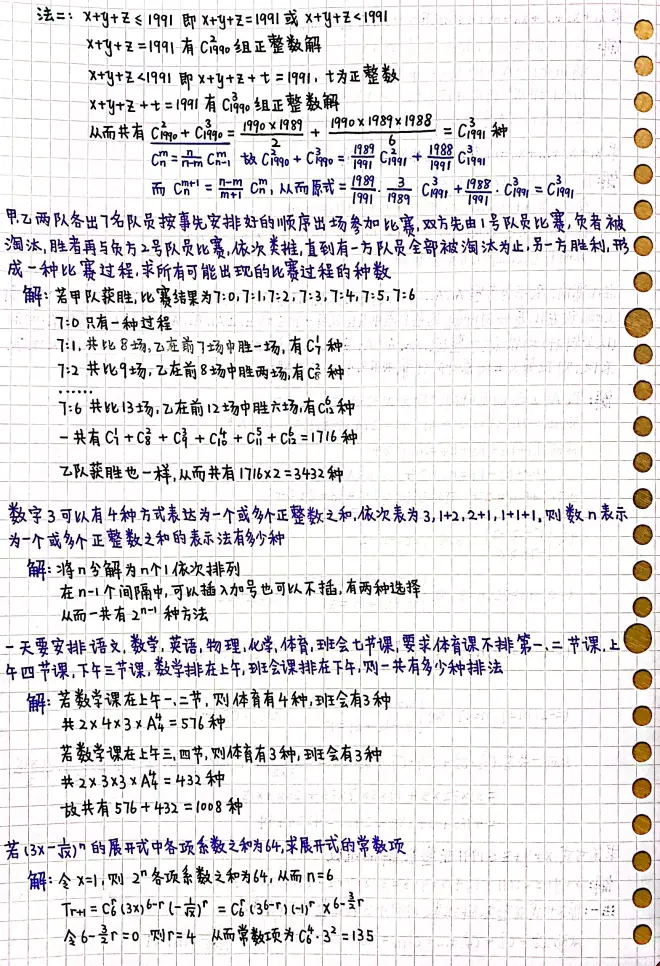 法二: x+y+z ≤ 1991 即 x+y+z=1991 或 x+y+z<1991
x+y+z=1991 有 C²₁₉₉₀ 组正整数解
x+y+z<1991 即 x+y+z+t=1991, t为正整数
x+y+z+t=1991 有 C³₁₉₉₀ 组正整数解
从而共有 C²₁₉₉₀ + C³₁₉₉₀ = 1990×1989/2 + 1990×1989×1988/6 = C³₁₉₉₁ 种
Cₙᵐ = n/(n-m) Cₙ₋₁ᵐ 故 C²₁₉₉₀ + C³₁₉₉₀ = 1989/1991 C²₁₉₉₁ + 1988/1991 C³₁₉₉₁
而 Cₙᵐ⁺¹ = (n-m)/(m+1) Cₙᵐ, 从而原式 = 1989/1991 · 3/1989 C³₁₉₉₁ + 1988/1991 · C³₁₉₉₁ = C³₁₉₉₁
甲.乙两队各出7名队员按事先安排好的顺序出场参加比赛,双方先由1号队员比赛,负者被
淘汰,胜者再与负方2号队员比赛,依次类推,直到有一方队员全部被淘汰为止,另一方胜利,形
成一种比赛过程,求所有可能出现的比赛过程的种数
解: 若甲队获胜,比赛结果为7:0,7:1,7:2,7:3,7:4,7:5,7:6
7:0 只有一种过程
7:1, 共比8场,乙在前7场中胜一场,有C¹₇ 种
7:2 共比9场,乙在前8场中胜两场,有C²₈ 种
……
7:6 共比13场,乙在前12场中胜六场,有C⁶₁₂种
一共有 C¹₇ + C²₈ + C³₉ + C⁴₁₀ + C⁵₁₁ + C⁶₁₂ = 1716 种
乙队获胜也一样,从而共有1716×2=3432种
数字3可以有4种方式表达为一个或多个正整数之和,依次表为3,1+2,2+1,1+1+1,则数n表示
为一个或多个正整数之和的表示法有多少种
解: 将n分解为n个1依次排列
在n-1个间隔中,可以插入加号也可以不插,有两种选择
从而一共有 2ⁿ⁻¹ 种方法
一天要安排语文,数学,英语,物理,化学,体育,班会七节课,要求体育课不排第一、二节课,上
午四节课,下午三节课,数学排在上午,班会课排在下午,则一共有多少种排法
解: 若数学课在上午一、二节,则体育有4种,班会有3种
共 2×4×3×A⁴₄ = 576 种
若数学课在上午三,四节,则体育有3种,班会有3种
共 2×3×3×A⁴₄ = 432 种
故共有 576+432=1008 种
若(3x-1/√x)ⁿ 的展开式中各项系数之和为64,求展开式的常数项
解: 令 x=1, 则 2ⁿ 各项系数之和为64, 从而 n=6
Tᵣ₊₁ = C₆ʳ (3x)⁶⁻ʳ (-1/√x)ʳ = C₆ʳ (3⁶⁻ʳ)(-1)ʳ x^(6-3/2r)
令 6-3/2r=0 则r=4 从而常数项为 C₆⁴·3²=135